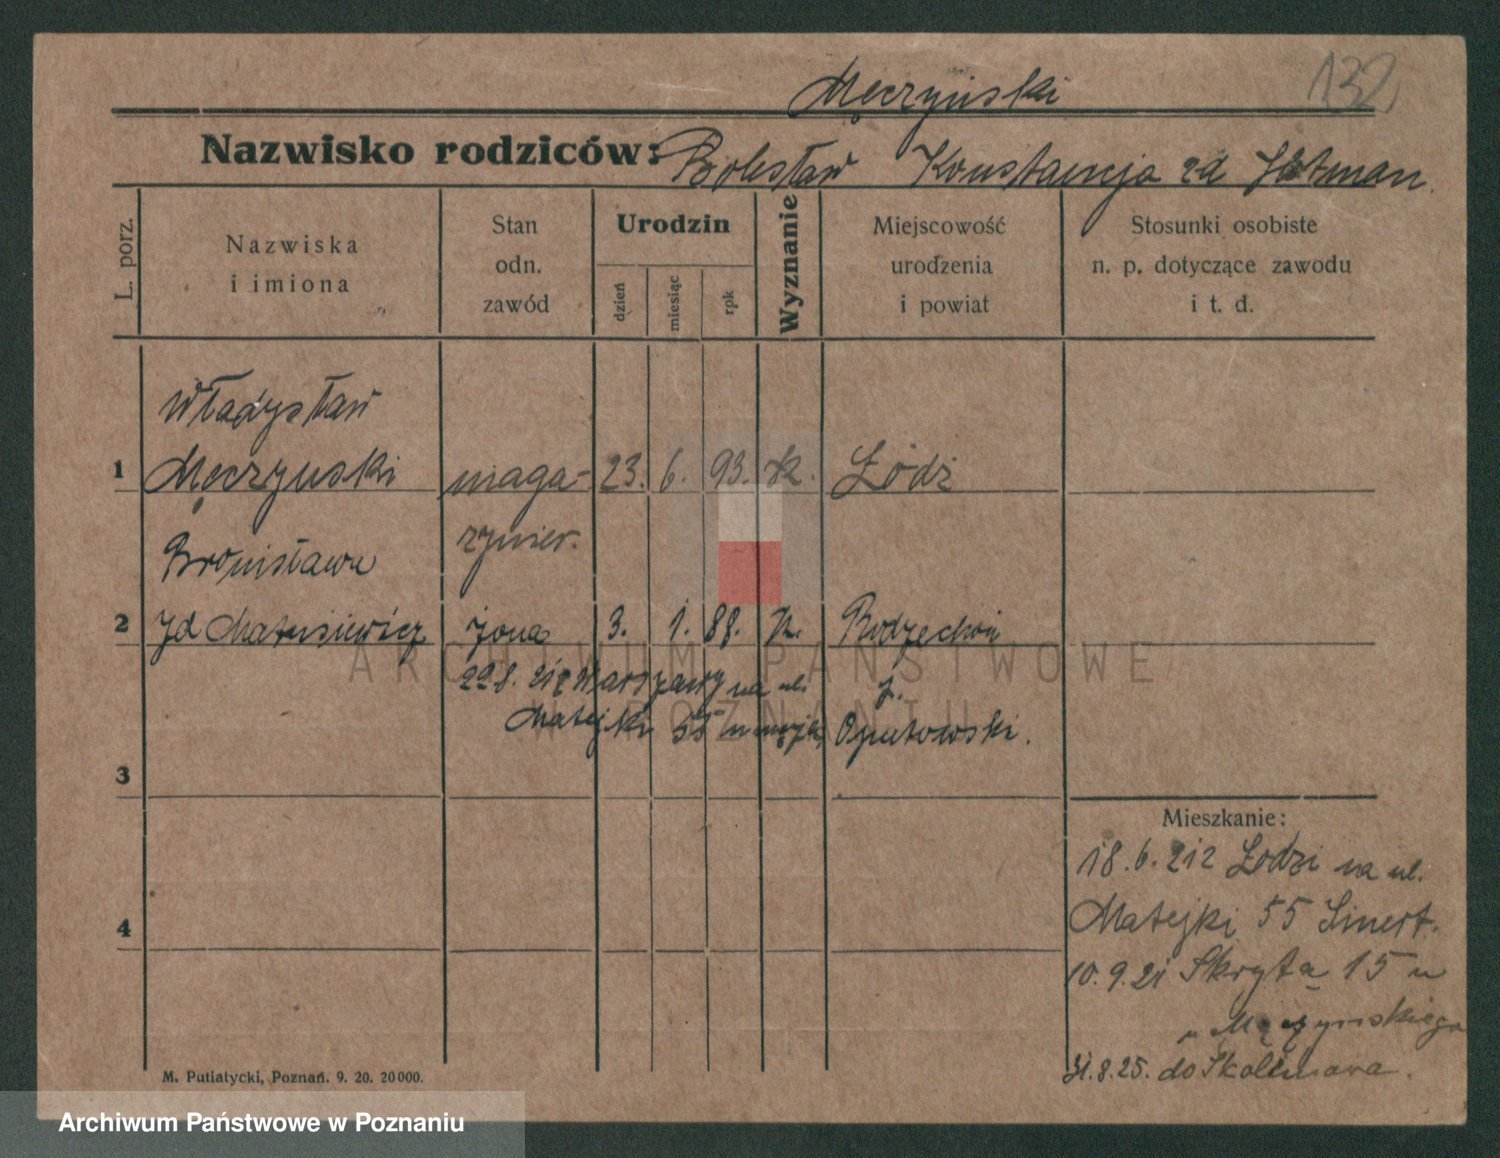 Męczyński 132
Nazwisko rodziców: Bolesław Konstancja zd Hetman.
L. porz.
Nazwiska
i imiona
Stan
odn.
zawód
Urodzin
dzień
miesiąc
rok
Wyznanie
Miejscowość
urodzenia
i powiat
Stosunki osobiste
n. p. dotyczące zawodu
i t. d.
Władysław
1 Męczyński maga- 23. 6. 93. K. Łódź
Bronisława zynier.
2 zd Matusiewicz żona 3. 1. 88. K.
22 8. 21 z Warszawy na ul.
Matejki 55 męża
3
Mieszkanie:
18.6.21 z Łodzi na ul.
4 Matejki 55
10.9.21 Skryta 15 u
Męczyńskiego
31.8.25. do
M. Putiatycki, Poznań. 9. 20. 20000.
ARCHIWUM PAŃSTWOWE
W POZNANIU
Archiwum Państwowe w Poznaniu